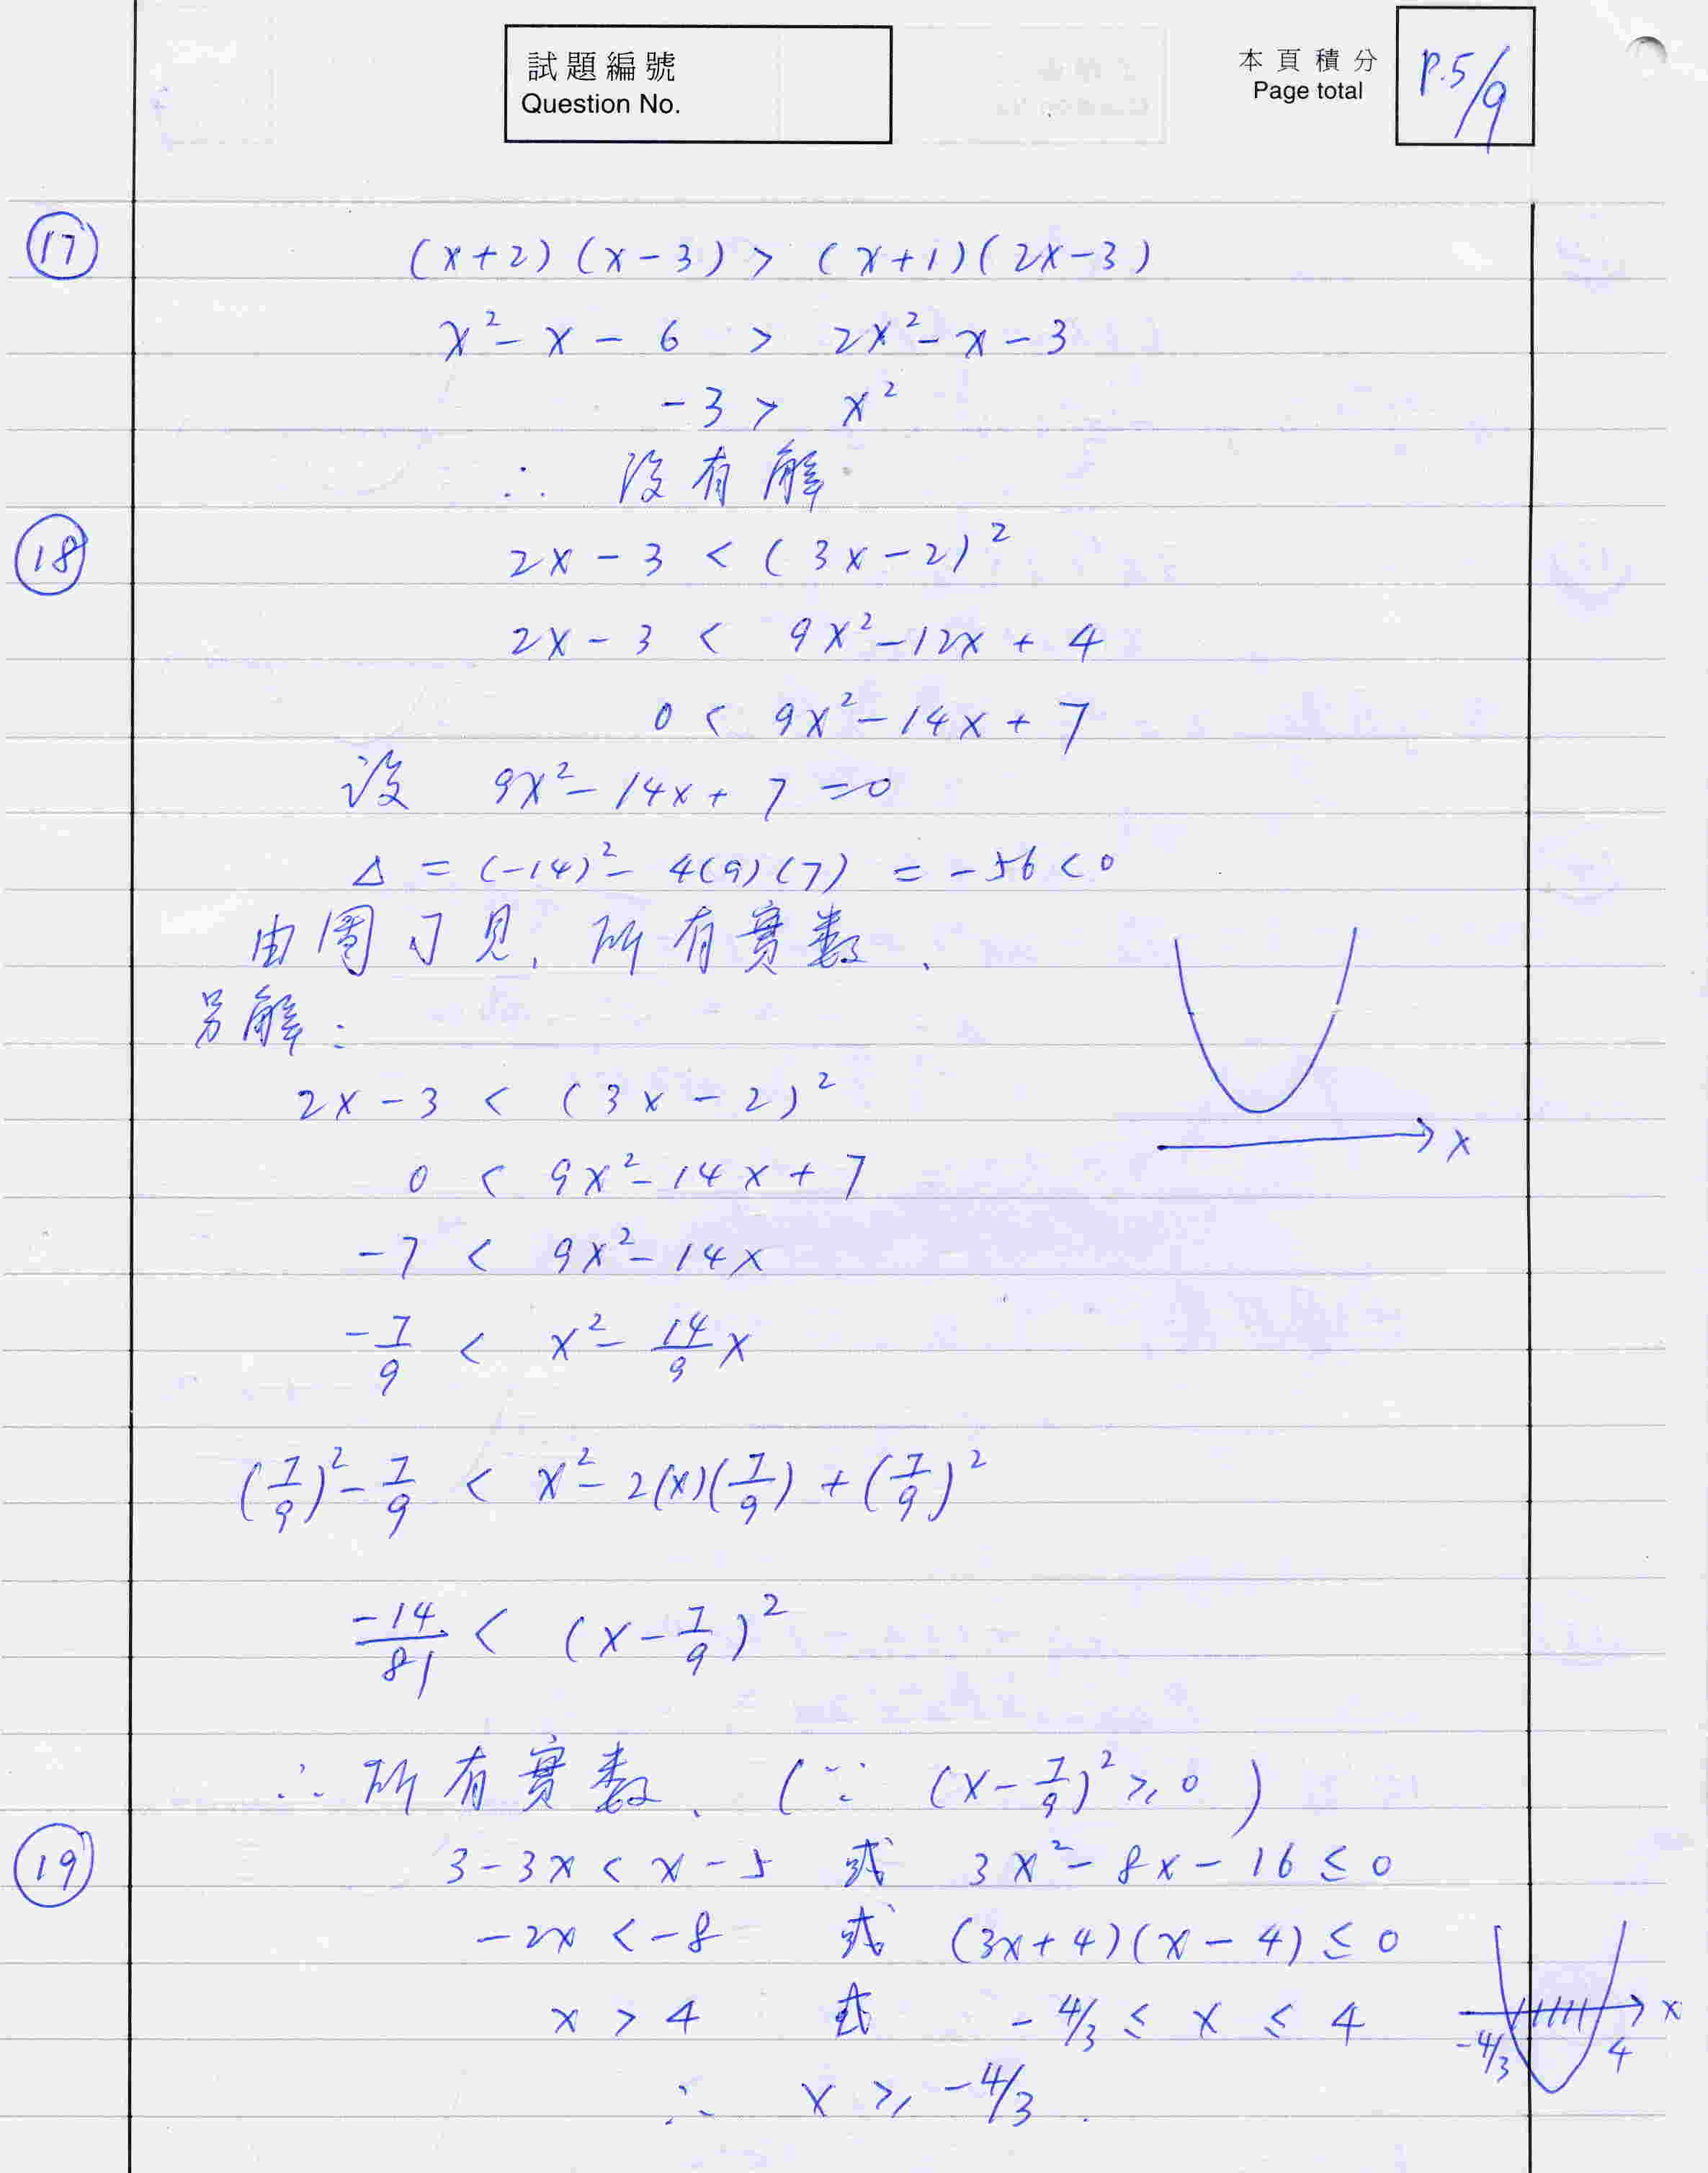 試題編號
Question No.
本頁積分
Page total
P.5/9
17
(x+2)(x-3) > (x+1)(2x-3)
x²-x-6 > 2x²-x-3
-3 > x²
∴ 沒有解
18
2x-3 < (3x-2)²
2x-3 < 9x²-12x+4
0 < 9x²-14x+7
設 9x²-14x+7=0
Δ = (-14)²-4(9)(7) = -56<0
由圖可見, 所有實數.
另解:
2x-3 < (3x-2)²
x
0 < 9x²-14x+7
-7 < 9x²-14x
-7/9 < x²-14/9x
(7/9)²-7/9 < x²-2(x)(7/9)+(7/9)²
-14/81 < (x-7/9)²
∴ 所有實數. (∵ (x-7/9)²≥0)
19
3-3x < x-5 或 3x²-8x-16≤0
-2x < -8 或 (3x+4)(x-4)≤0
x > 4 或 -4/3 ≤ x ≤ 4
x
-4/3 4
∴ x ≥ -4/3.